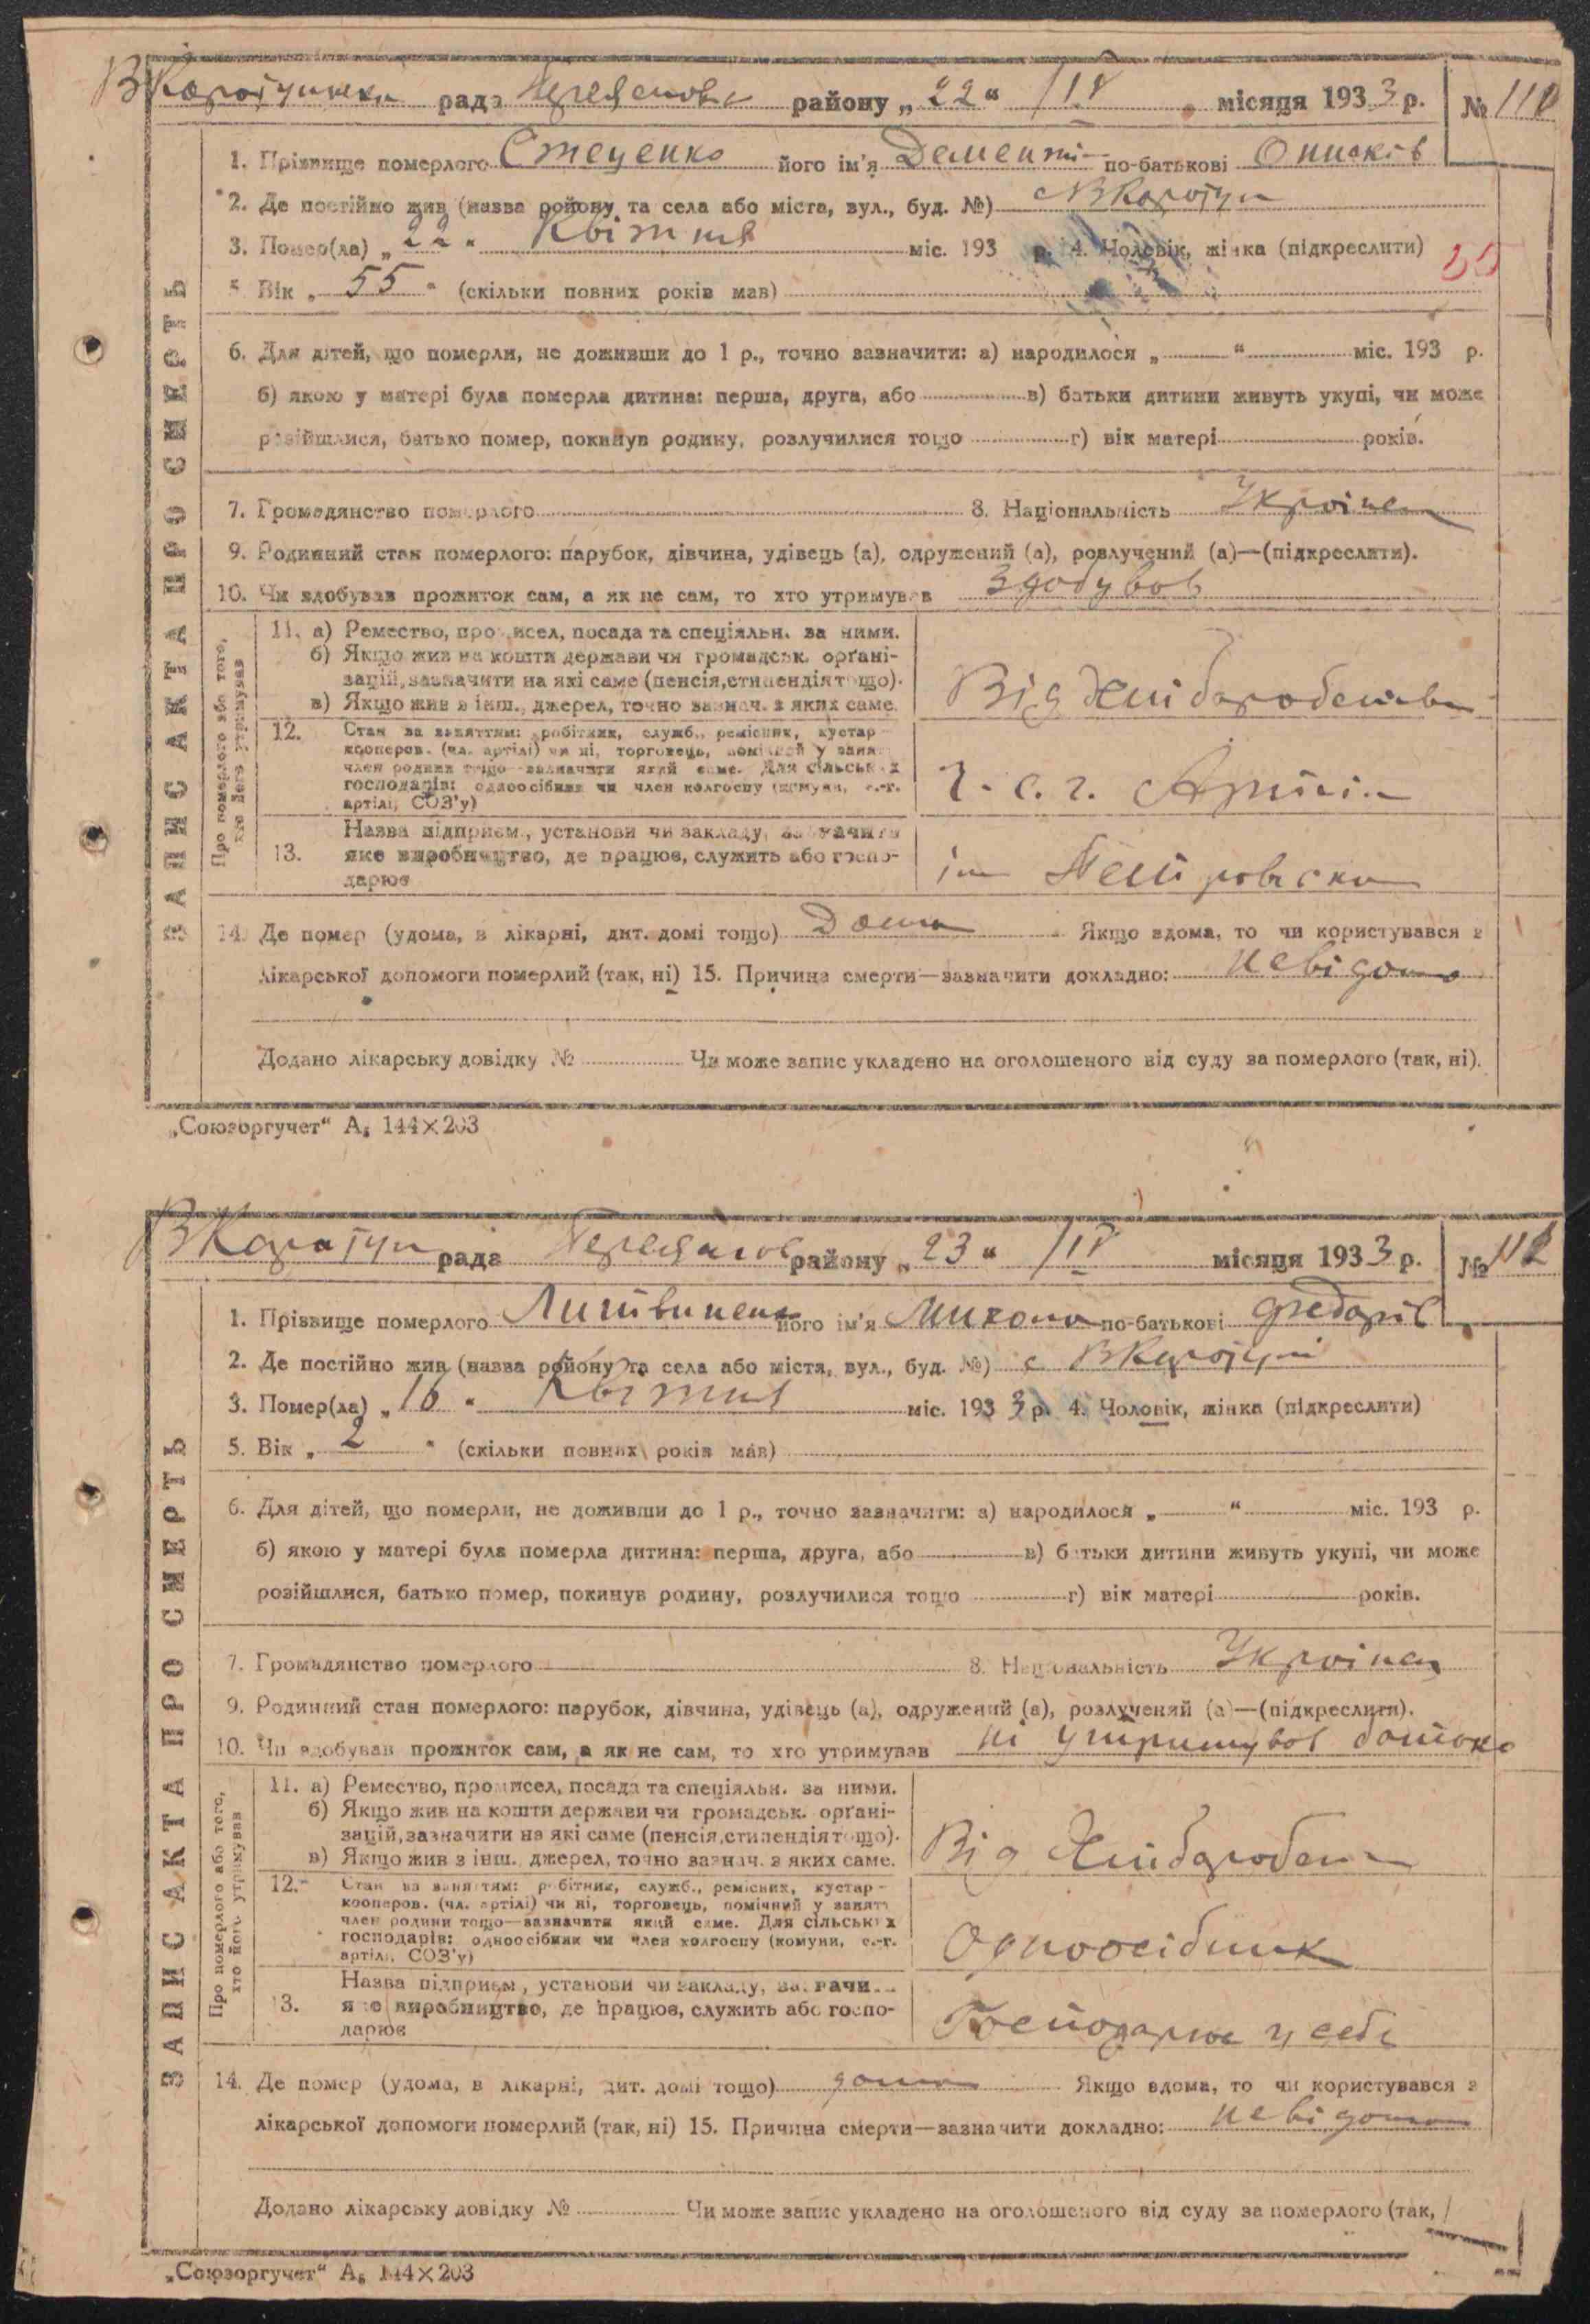 ВКаратульська рада Переяслові району „22“ /IV місяця 1933 р. № 110
ЗАПИС АКТА ПРО СМЕРТЬ
1. Прізвище померлого Стеценко його ім'я Дементі по-батькові Онисків
2. Де постійно жив (назва району та села або міста, вул., буд. №) с ВКаратул
3. Помер(ла) „22“ Квітня міс. 193 р. 4. Чоловік, жінка (підкреслити)
5. Вік „55“ (скільки повних років мав)
6. Для дітей, що померли, не доживши до 1 р., точно зазначити: а) народилося „ “ міс. 193 р.
б) якою у матері була померла дитина: перша, друга, або в) батьки дитини живуть укупі, чи може
розійшлися, батько помер, покинув родину, розлучилися тощо г) вік матері років.
7. Громадянство померлого 8. Національність Украінец
9. Родинний стан померлого: парубок, дівчина, удівець (а), одружений (а), розлучений (а)—(підкреслити).
10. Чи здобував прожиток сам, а як не сам, то хто утримував Здобував
Про померлого або того, хто його утримував
11. а) Ремество, промисел, посада та спеціяльн. за ними.
б) Якщо жив на кошти держави чи громадськ. орґані-
зацій, зазначити на які саме (пенсія, стипендія тощо).
в) Якщо жив з інш., джерел, точно зазнач. з яких саме.
Від Хліборобства
12. Стан за заняттям: робітник, служб., ремісник, кустар-
кооперов. (чл. артілі) чи ні, торговець, помічний у занят.
член родини тощо—зазначити який саме. Для сільських
господарів: одноосібник чи член колгоспу (комуни, с.-г.
артілі, СОЗ'у)
Ч. с. г. Артілі
13. Назва підприєм., установи чи закладу, зазначити
яке виробництво, де працює, служить або госпо-
дарює
ім Петровского
14. Де помер (удома, в лікарні, дит. домі тощо) Дома Якщо вдома, то чи користувався з
лікарської допомоги померлий (так, ні) 15. Причина смерти—зазначити докладно: невідомо
Додано лікарську довідку № Чи може запис укладено на оголошеного від суду за померлого (так, ні).
„Союзоргучет“ А₅ 144×203
ВКаратул рада Переяслов району „23“ /IV місяця 1933 р. № 112
ЗАПИС АКТА ПРО СМЕРТЬ
1. Прізвище померлого Литвиненко його ім'я Микола по-батькові Федорів
2. Де постійно жив (назва району та села або міста, вул., буд. №) с ВКаратул
3. Помер(ла) „16“ Квітня міс. 1933 р. 4. Чоловік, жінка (підкреслити)
5. Вік „2“ (скільки повних років мав)
6. Для дітей, що померли, не доживши до 1 р., точно зазначити: а) народилося „ “ міс. 193 р.
б) якою у матері була померла дитина: перша, друга, або в) батьки дитини живуть укупі, чи може
розійшлися, батько помер, покинув родину, розлучилися тощо г) вік матері років.
7. Громадянство померлого 8. Національність Украінец
9. Родинний стан померлого: парубок, дівчина, удівець (а), одружений (а), розлучений (а)—(підкреслити).
10. Чи здобував прожиток сам, а як не сам, то хто утримував ні утримував батько
Про померлого або того, хто його утримував
11. а) Ремество, промисел, посада та спеціяльн. за ними.
б) Якщо жив на кошти держави чи громадськ. орґані-
зацій, зазначити на які саме (пенсія, стипендія тощо).
в) Якщо жив з інш., джерел, точно зазнач. з яких саме.
Від Хліборобства
12. Стан за заняттям: робітник, служб., ремісник, кустар-
кооперов. (чл. артілі) чи ні, торговець, помічний у занят.
член родини тощо—зазначити який саме. Для сільських
господарів: одноосібник чи член колгоспу (комуни, с.-г.
артілі, СОЗ'у)
Одноосібник
13. Назва підприєм., установи чи закладу, зазначи
яке виробництво, де працює, служить або госпо-
дарює
Господарює у себе
14. Де помер (удома, в лікарні, дит. домі тощо) дома Якщо вдома, то чи користувався з
лікарської допомоги померлий (так, ні) 15. Причина смерти—зазначити докладно: невідомо
Додано лікарську довідку № Чи може запис укладено на оголошеного від суду за померлого (так,
„Союзоргучет“ А₅ 144×203